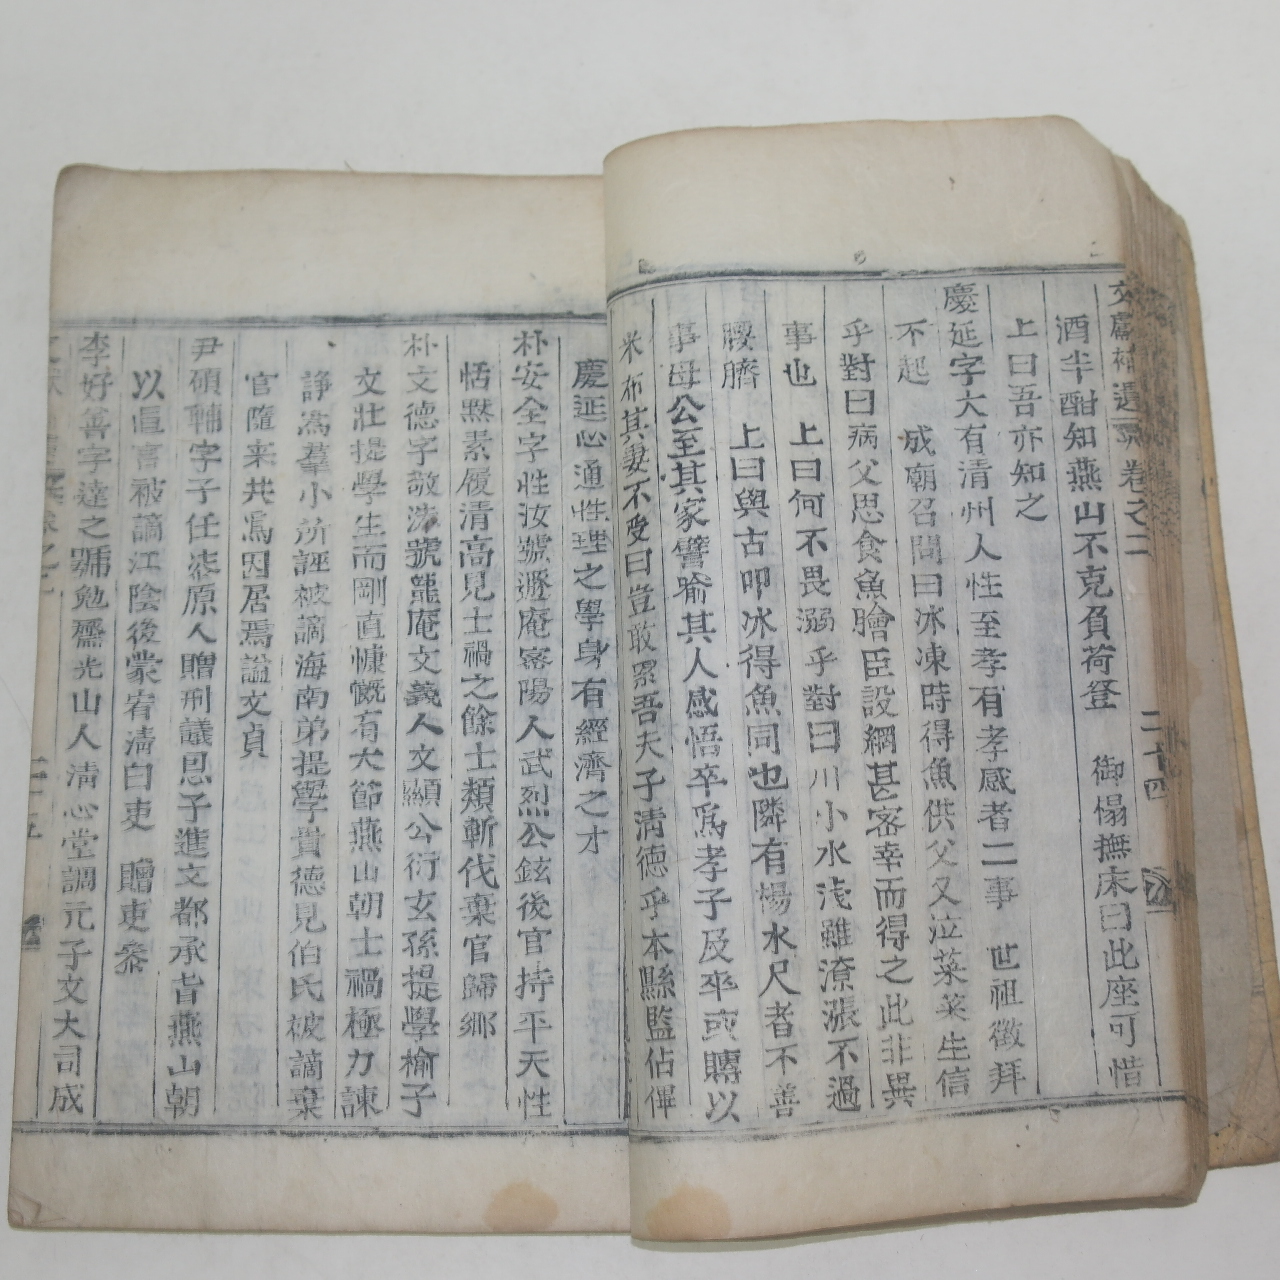 文獻補遺卷之二 二十四
酒半酣知燕山不克負荷登 御榻撫床曰此座可惜
上曰吾亦知之
慶延字大有清州人性至孝有孝感者二事 世祖徵拜
不起 成廟召問曰冰凍時得魚供父又泣菜菜生信
乎對曰病父思食魚膾臣設網甚密幸而得之此非異
事也 上曰何不畏溺乎對曰川小水淺雖潦漲不過
腰臍 上曰與古叩冰得魚同也隣有楊水尺者不善
事母公至其家譬喩其人感悟卒爲孝子及卒或賻以
米布其妻不受曰豈敢累吾夫子淸德乎本縣監佔僤
慶延心通性理之學身有經濟之才
朴安全字性汝號遯庵密陽人武烈公鉉後官持平天性
恬默素履清高見士禍之餘士類斬伐棄官歸鄉
朴文德字敬洙號龍庵文義人文顯公衍玄孫提學楡子
文壯提學生而剛直慷慨有大節燕山朝士禍極力諫
諍爲羣小所誣被謫海南弟提學貴德見伯氏被謫棄
官隨来共爲因居焉謚文貞
尹碩輔字子任漆原人贈刑議思子進文都承旨燕山朝
以直言被謫江陰後蒙宥淸白吏 贈吏參
李好善字達之號勉齋光山人清心堂調元子文大司成